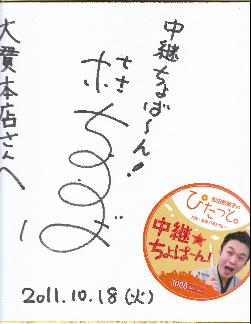 中継ちょぱ〜ん!
ささ
ちょぱ
大賛本店さんへ
2011.10.18(火)
ぴたっと。
中継★
ちょぱーん!
1008